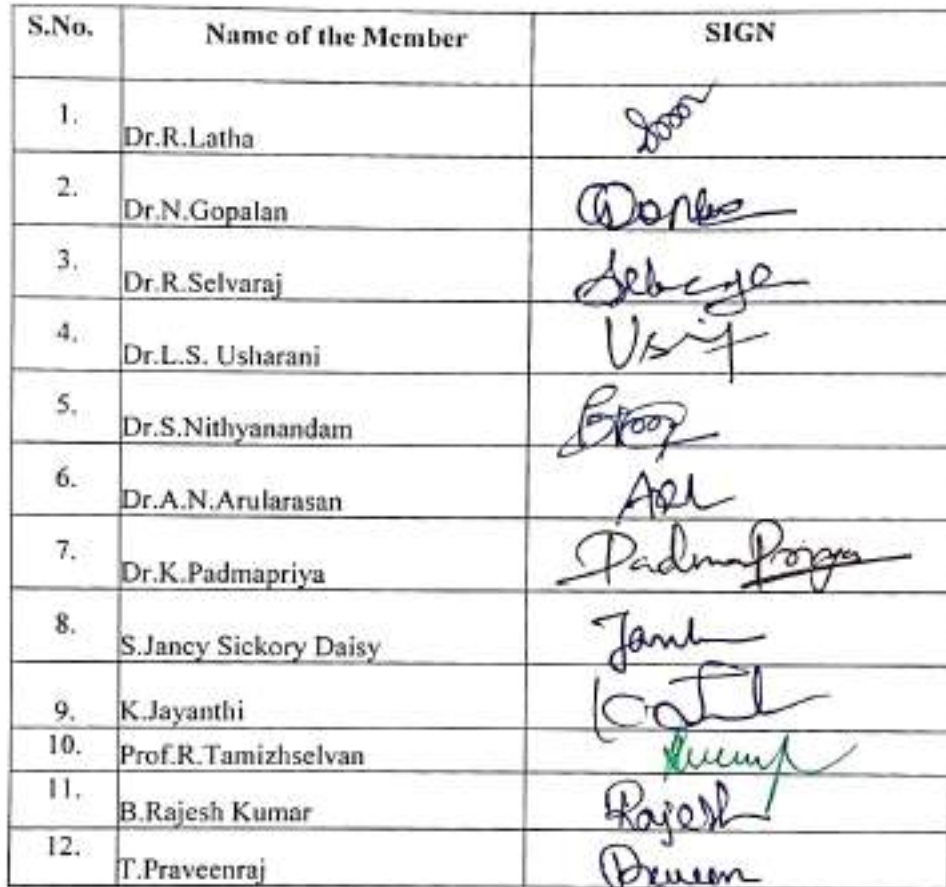 S.No. Name of the Member SIGN
1. Dr.R.Latha
2. Dr.N.Gopalan
3. Dr.R.Selvaraj
4. Dr.L.S. Usharani
5. Dr.S.Nithyanandam
6. Dr.A.N.Arularasan
7. Dr.K.Padmapriya PadmaPriya
8. S.Jancy Sickory Daisy
9. K.Jayanthi
10. Prof.R.Tamizhselvan
11. B.Rajesh Kumar Rajesh
12. T.Praveenraj